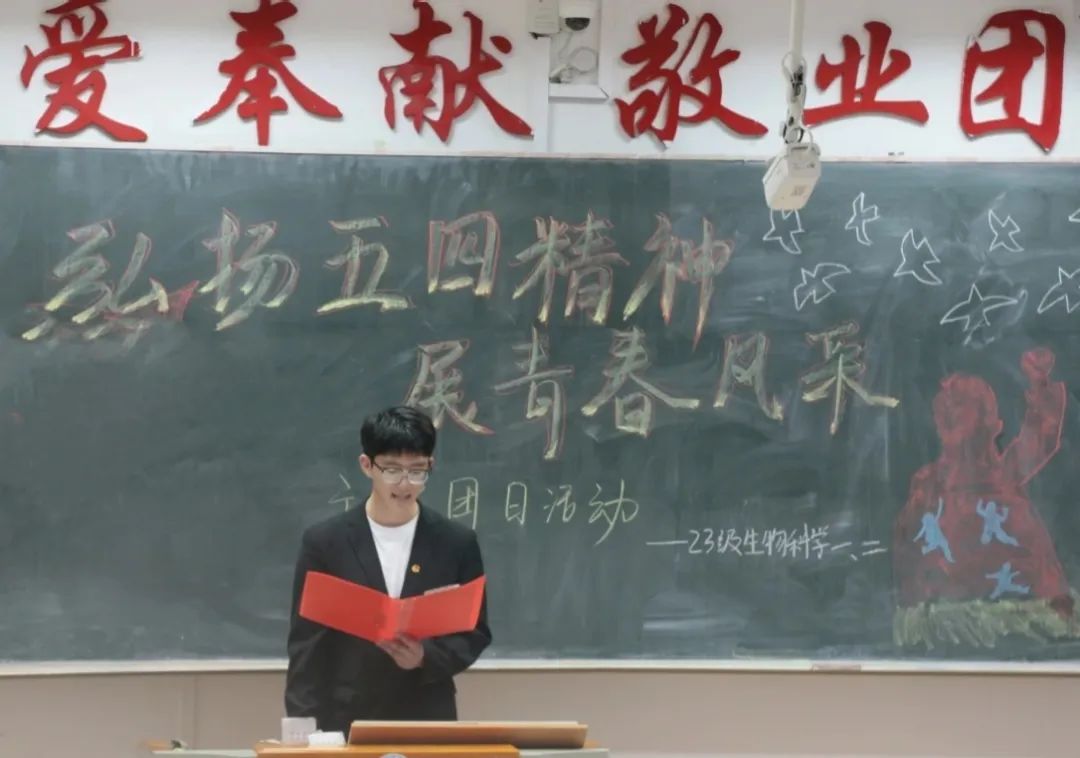 爱奉献敬业团
弘扬五四精神
展青春风采
团日活动
—23级生物科学一、二